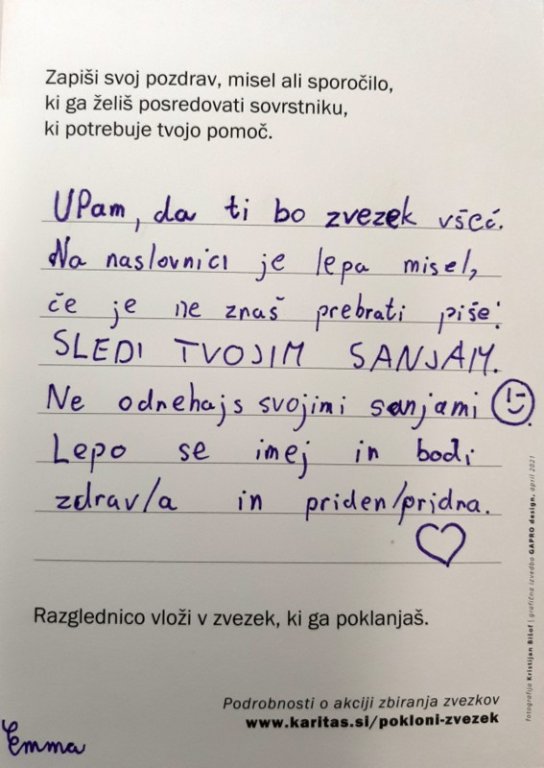 Zapiši svoj pozdrav, misel ali sporočilo,
ki ga želiš posredovati sovrstniku,
ki potrebuje tvojo pomoč.
UPam, da ti bo zvezek všeč.
Na naslovnici je lepa misel,
če je ne znaš prebrati piše:
SLEDI TVOJIM SANJAM.
Ne odnehajs svojimi sanjami
Lepo se imej in bodi
zdrav/a in priden/pridna.
Razglednico vloži v zvezek, ki ga poklanjaš.
Podrobnosti o akciji zbiranja zvezkov
www.karitas.si/pokloni-zvezek
Emma
fotografija Kristijan Bišof | grafična izvedba GAPRO design, april 2021